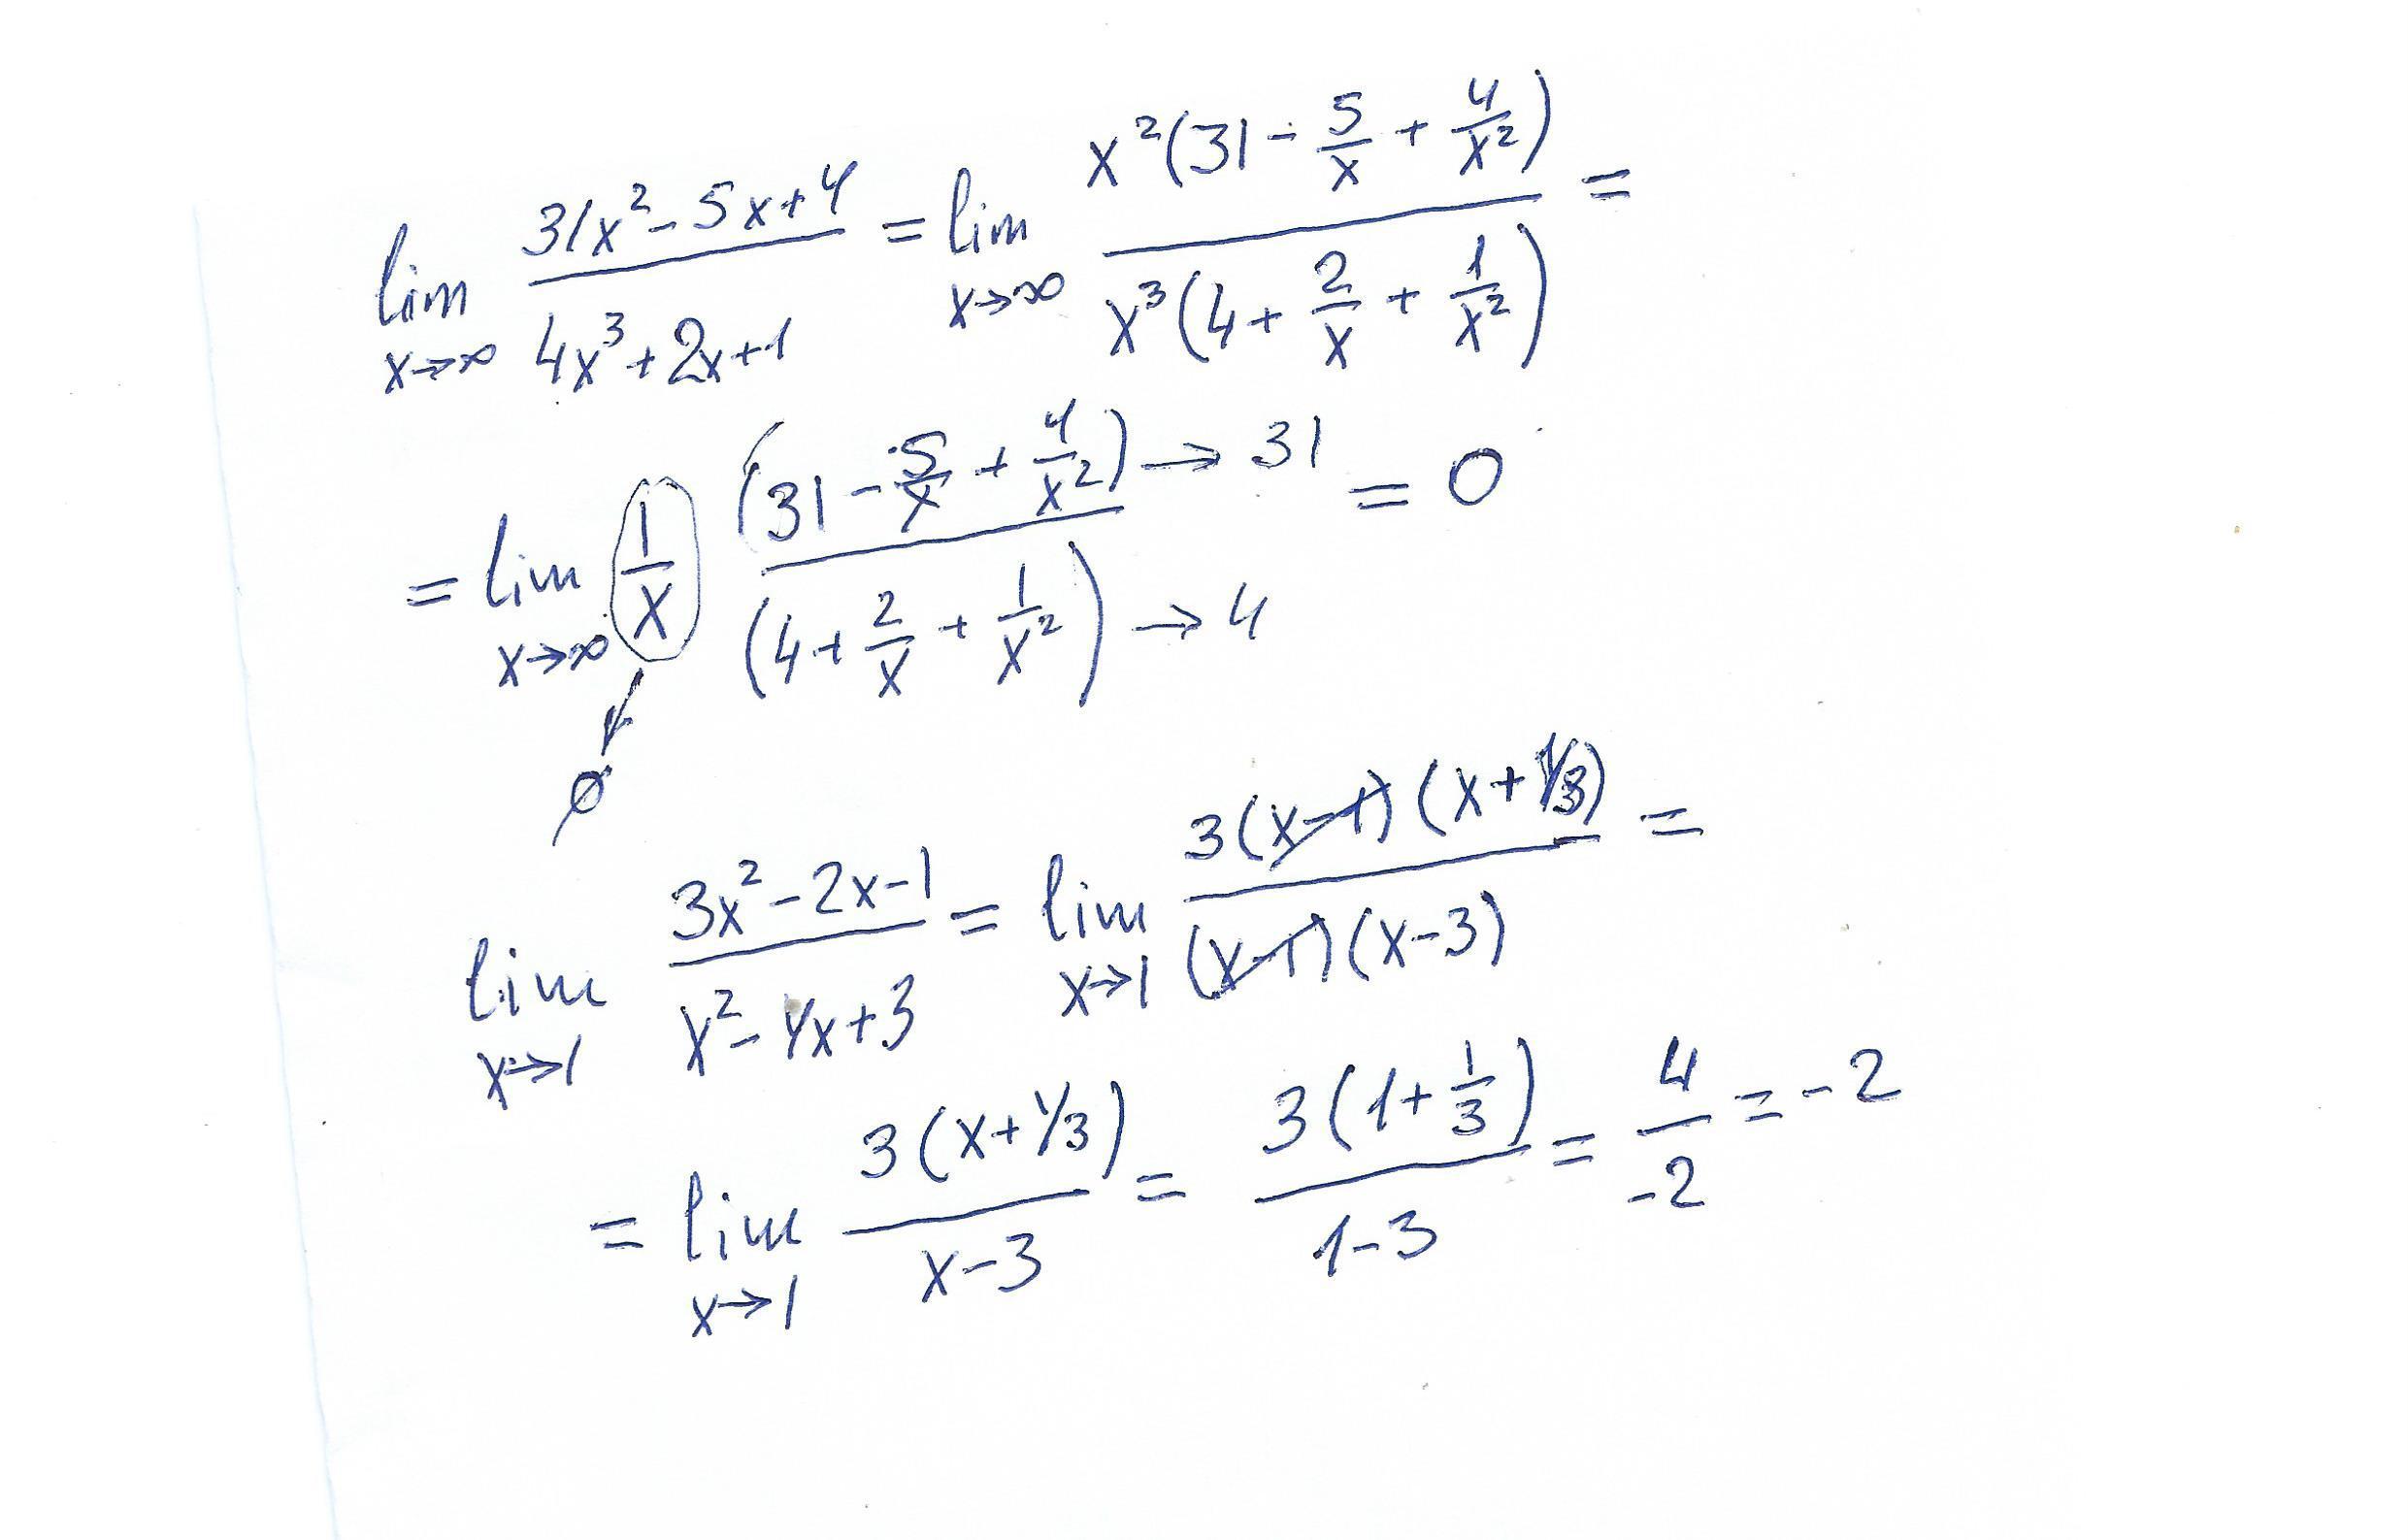 lim x→∞ (31x² - 5x + 4)/(4x³ + 2x + 1) = lim x→∞ x²(31 - 5/x + 4/x²)/x³(4 + 2/x + 1/x²) =
= lim x→∞ 1/x (31 - 5/x + 4/x²) → 31 / (4 + 2/x + 1/x²) → 4 = 0
0
lim x→1 (3x² - 2x - 1)/(x² - 4x + 3) = lim x→1 3(x-1)(x + 1/3)/(x-1)(x-3) =
= lim x→1 3(x + 1/3)/(x - 3) = 3(1 + 1/3)/(1 - 3) = 4/-2 = -2